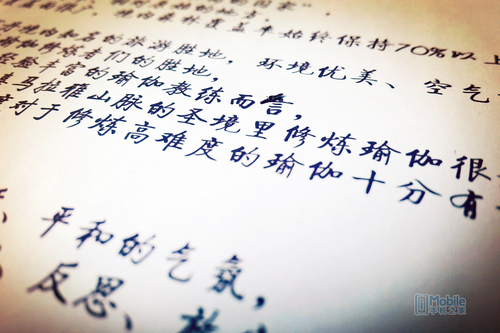 国家"。
境内森林覆盖率始终保持70%以上
知名的旅游胜地，环境优美、空气
瑜伽修炼者们的胜地，
经验丰富的瑜伽教练而言，
喜马拉雅山脉的圣境里修炼瑜伽很
对于修炼高难度的瑜伽十分有
平和的气氛，
反思、
Mobile